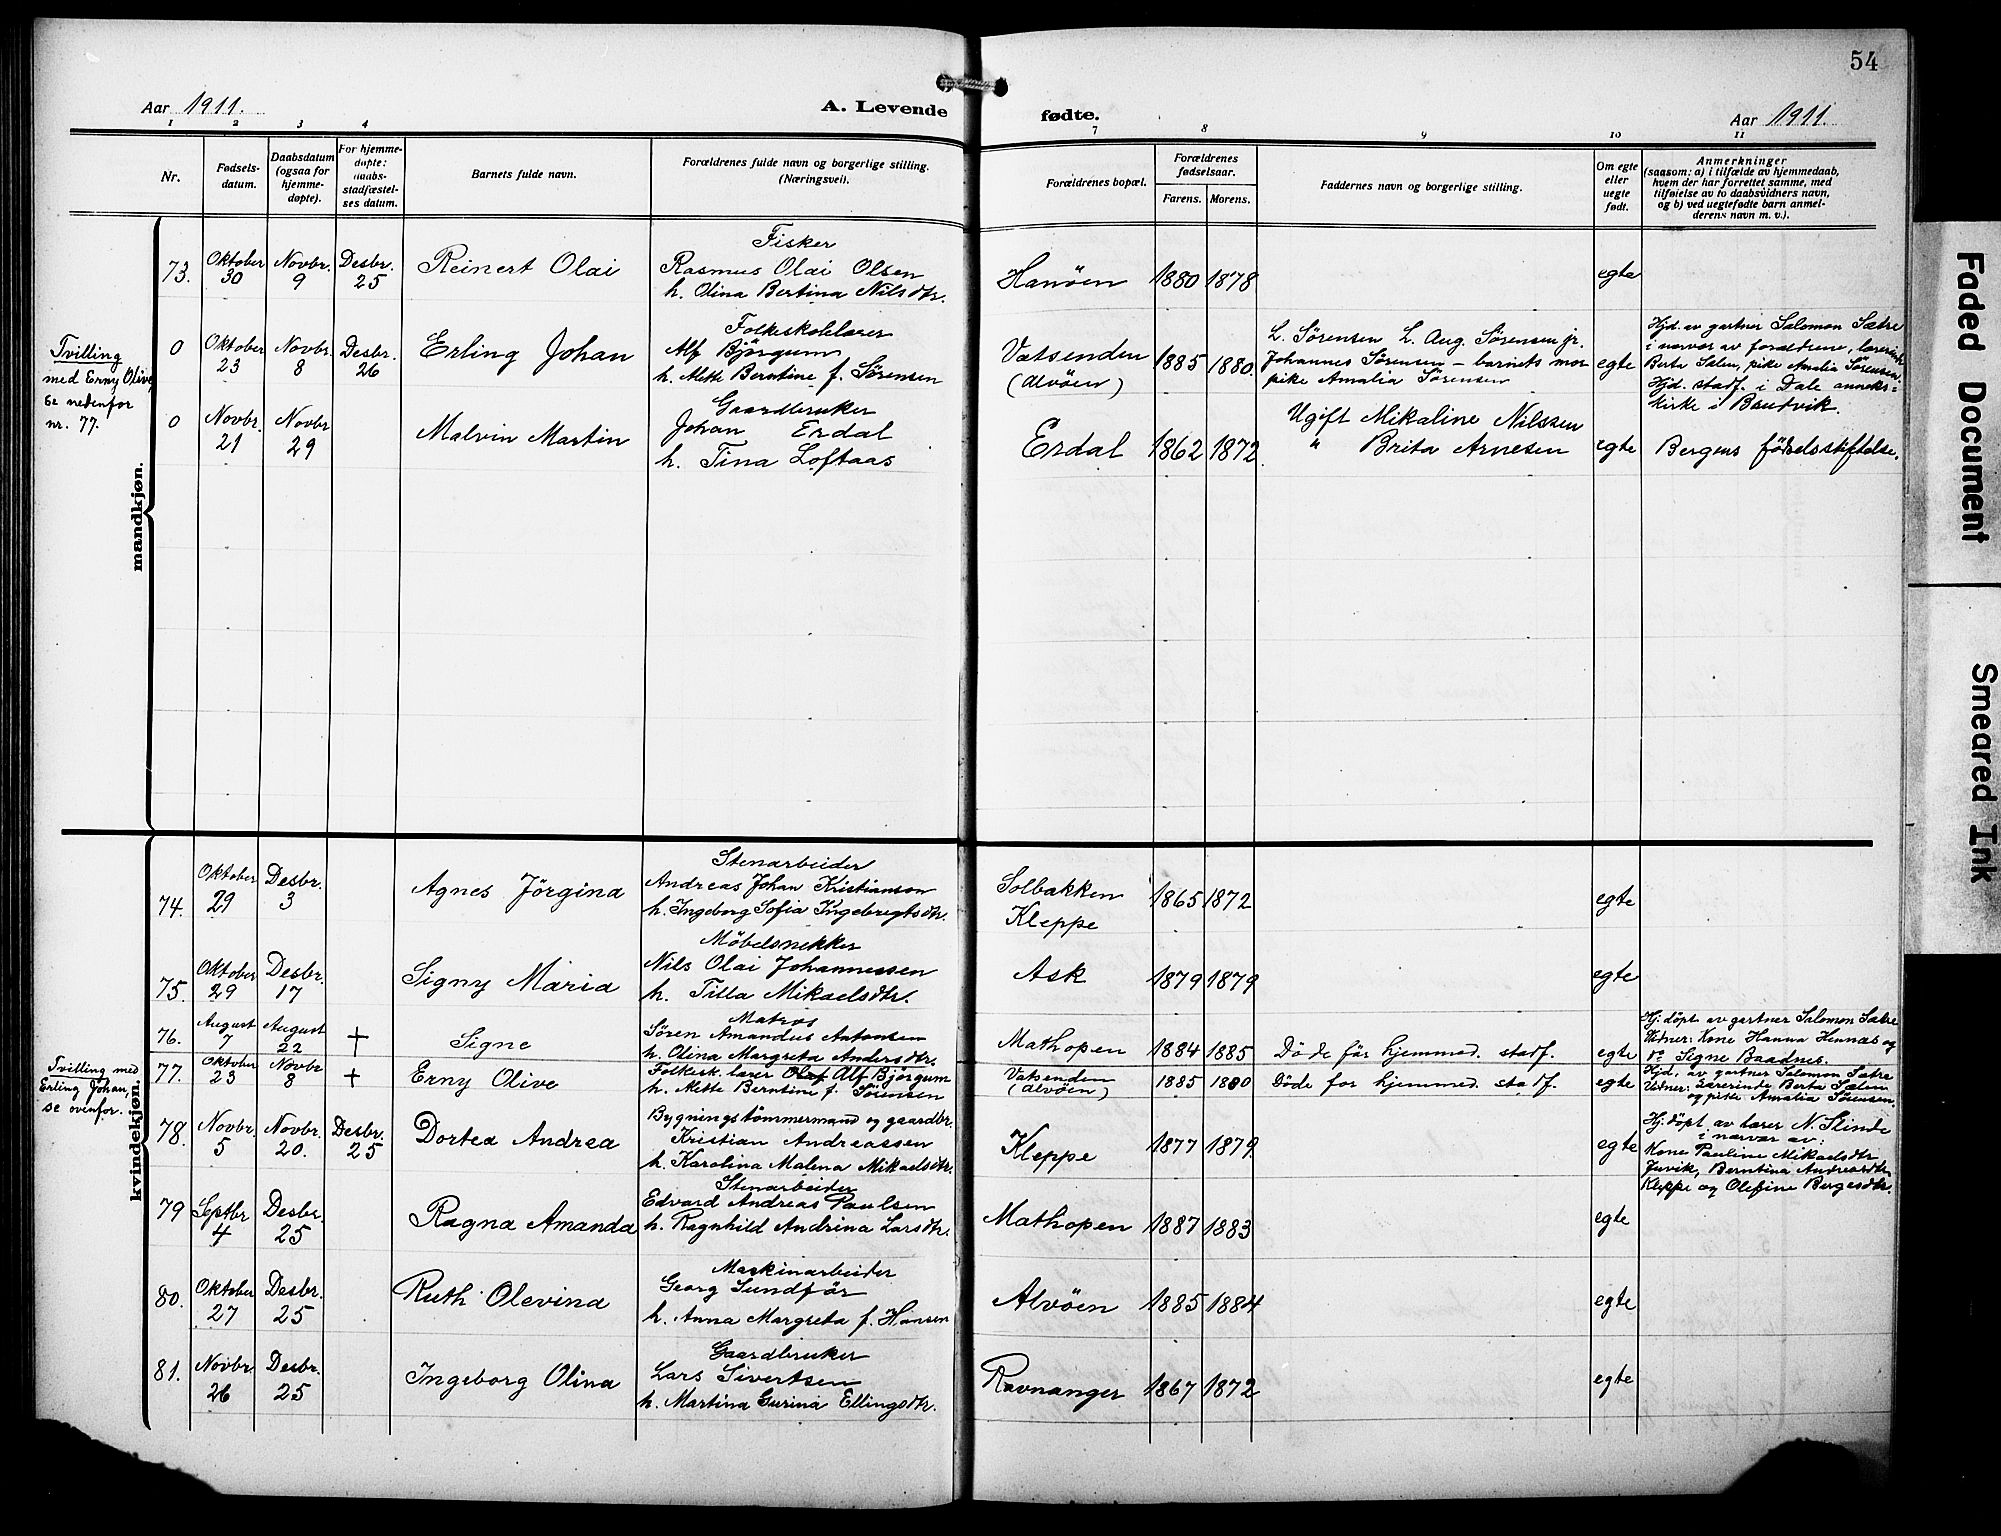 54
Aar 1911. A. Levende fødte. Aar 1911.
1 2 3 4 7 8 9 10 11
Nr. Fødsels-datum. Daabsdatum (ogsaa for hjemme-døpte). For hjemme-døpte: daabs-stadfæstel-ses datum. Barnets fulde navn. Forældrenes fulde navn og borgerlige stilling. (Næringsvei). Forældrenes bopæl. Forældrenes fødselsaar. Farens. Morens. Faddernes navn og borgerlige stilling. Om egte eller uegte født. Anmerkninger (saasom: a) i tilfælde av hjemmedaab, hvem der har forrettet samme, med tilføielse av to daabsvidners navn, og b) ved uegtefødte barn anmel-derens navn m. v.).
mandkjøn.
73. Oktober 30 Novbr. 9 Desbr. 25 Reinert Olai
Fisker
Rasmus Olai Olsen
h. Olina Bertina Nilsdtr.
Hanöen 1880 1878 egte
Tvilling
med Erny Olive,
se nedenfor
nr. 77.
0 Oktober 23 Novbr. 8 Desbr. 26 Erling Johan
Folkeskolelærer
Alf Björgum
h. Mette Berntine f. Sörensen
Vatsenden
(Alvöen)
1885 1880
L. Sörensen L. Aug. Sörensen jr.
Johannes Sörensen – barnets mor
pike Amalia Sörensen
egte
Hjd. av gartner Salomon Sætre
i nærvær av forældrene, lærerinde
Berta Sælen, pike Amalia Sörensen.
Hjd. stadf. i Dale anneks=
kirke i Bruvik.
0 Novbr. 21 Novbr 29 Malvin Martin
Gaardbruker
Johan Erdal
h. Tina Loftaas
Erdal 1862 1872.
Ugift Mikaline Nilssen
" Brita Arnesen
egte Bergens födselsstiftelse.
kvindekjøn.
74. Oktober 29 Desbr. 3 Agnes Jörgina
Stenarbeider
Andreas Johan Kristianson
h. Ingeborg Sofia Ingebregtsdtr.
Solbakken
Kleppe
1865 1872 egte
75. Oktober 29 Desbr. 17 Signy Maria
Möbelsnekker
Nils Olai Johannessen
h. Tilla Mikaelsdtr.
Ask 1879 1879 egte
76. August 7 August 22 + Signe
Matros
Sören Amandus Antonsen
h. Olina Margreta Andersdtr.
Mathopen 1884 1885 Döde för hjemmed. stadf. egte
Hj: döpt av gartner Salomon Sætre
Vidner: Kone Hanna Hennæs og
do Signe Baadnes.
Tvilling med
Erling Johan,
se ovenfor.
77. Oktober 23 Novbr 8 + Erny Olive
Folkesk. lærer Olaf Alf Björgum
h. Mette Berntine f. Sörensen
Vatsenden
(Alvöen)
1885 1880 Döde for hjemmed. stadf. egte
Hjd. av gartner Salomon Sætre
Vidner: Lærerinde Berta Sælen
og pike Amalia Sörensen.
78. Novbr. 5 Novbr. 20. Desbr. 25 Dortea Andrea
Bygningstömmermand og gaardbr.
Kristian Andreassen
h. Karolina Malena Mikaelsdtr.
Kleppe 1877 1879 egte
Hj: döpt av lærer N. Slinde
i nærvær av:
Kone Pauline Mikaelsdtr
Juvik, Berntina Andreasdtr
Kleppe og Olefine Bergesdtr.
79 Septbr 4 Desbr. 25 Ragna Amanda
Stenarbeider
Edvard Andreas Paulsen
h. Ragnhild Andrina Larsdtr.
Mathopen 1887 1883 egte
80. Oktober 27 Desbr. 25 Ruth Olevina
Maskinarbeider
Georg Sundför
h. Anna Margreta f. Hansen
Alvöen 1885 1884 egte
81. Novbr. 26 Desbr. 25 Ingeborg Olina
Gaardbruker
Lars Sivertsen
h. Martina Gurina Ellingsdtr.
Ravnanger 1867 1872 egte
Faded Document
Smeared Ink